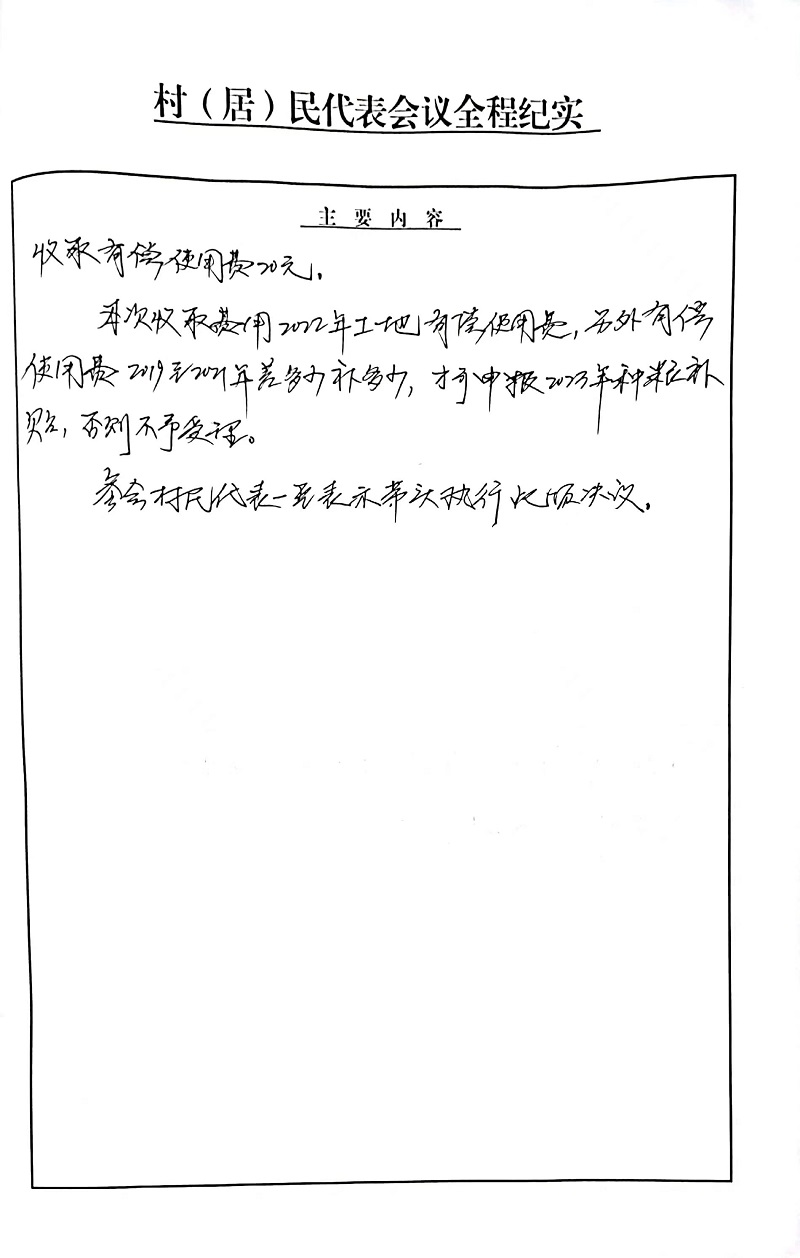 村（居）民代表会议全程纪实
主要内容
收取有偿使用费20元。
本次收取费用2022年土地有偿使用费，另外有偿
使用费2019至2021年差多少补多少，才可申报2023年种粮补
贴，否则不予受理。
参会村民代表一至表示带头执行此项决议。